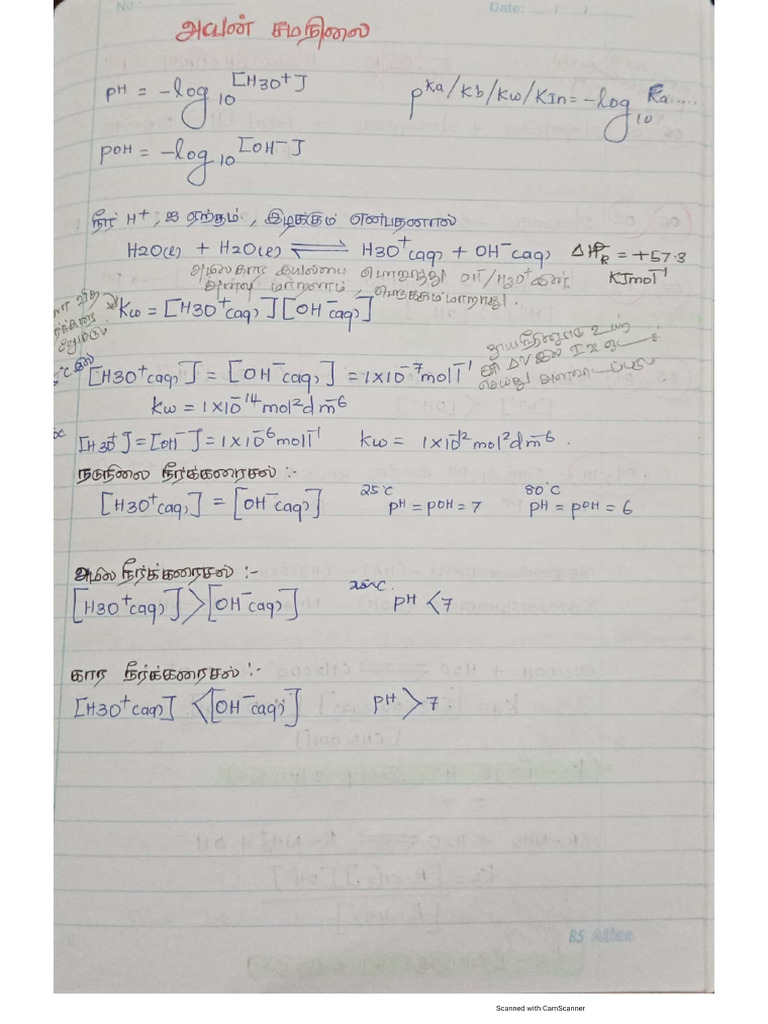 No :
Date: / /
அயன் சமநிலை
pH = -log10 [H3O+]
pKa/Kb/Kw/KIn = -log10 Ka.....
pOH = -log10 [OH-]
நீர் H+, ஐ ஏற்கும், இழக்கும் என்பதனால்
H2O(l) + H2O(l) ⇌ H3O+(aq) + OH-(aq) ΔHθR = +57.3 KJmol-1
அமிலகார இயல்பை பொறுத்து OH-/H3O+ இன்
அளவு மாறலாம், பெருக்கம் மாறாது.
Kw = [H3O+(aq)][OH-(aq)]
[H3O+(aq)] = [OH-(aq)] = 1×10-7 moll-1
Kw = 1×10-14 mol2dm-6
[H3O+] = [OH-] = 1×10-6 moll-1 Kw = 1×10-12 mol2dm-6.
நடுநிலை நீர்க்கரைசல் :-
[H3O+(aq)] = [OH-(aq)] 25°C pH = pOH = 7 80°C pH = pOH = 6
அமில நீர்க்கரைசல் :-
[H3O+(aq)] > [OH-(aq)] 25°C. pH < 7
கார நீர்க்கரைசல் :-
[H3O+(aq)] < [OH-(aq)] pH > 7
B5 Atlas
Scanned with CamScanner